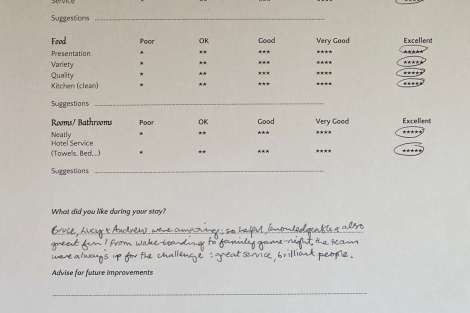 Service
Suggestions
Food Poor OK Good Very Good Excellent
Presentation * ** *** **** *****
Variety * ** *** **** *****
Quality * ** *** **** *****
Kitchen (clean) * ** *** **** *****
Suggestions
Rooms/ Bathrooms Poor OK Good Very Good Excellent
Neatly * *** **** *****
Hotel Service
(Towels, Bed...) * ** *** **** *****
Suggestions
What did you like during your stay?
Bruce, Lucy & Andrew were amazing; so helpful, knowledgeable & also
great fun! From wake-boarding to family game-night, the team
were always up for the challenge: great service, brilliant people.
Advise for future improvements